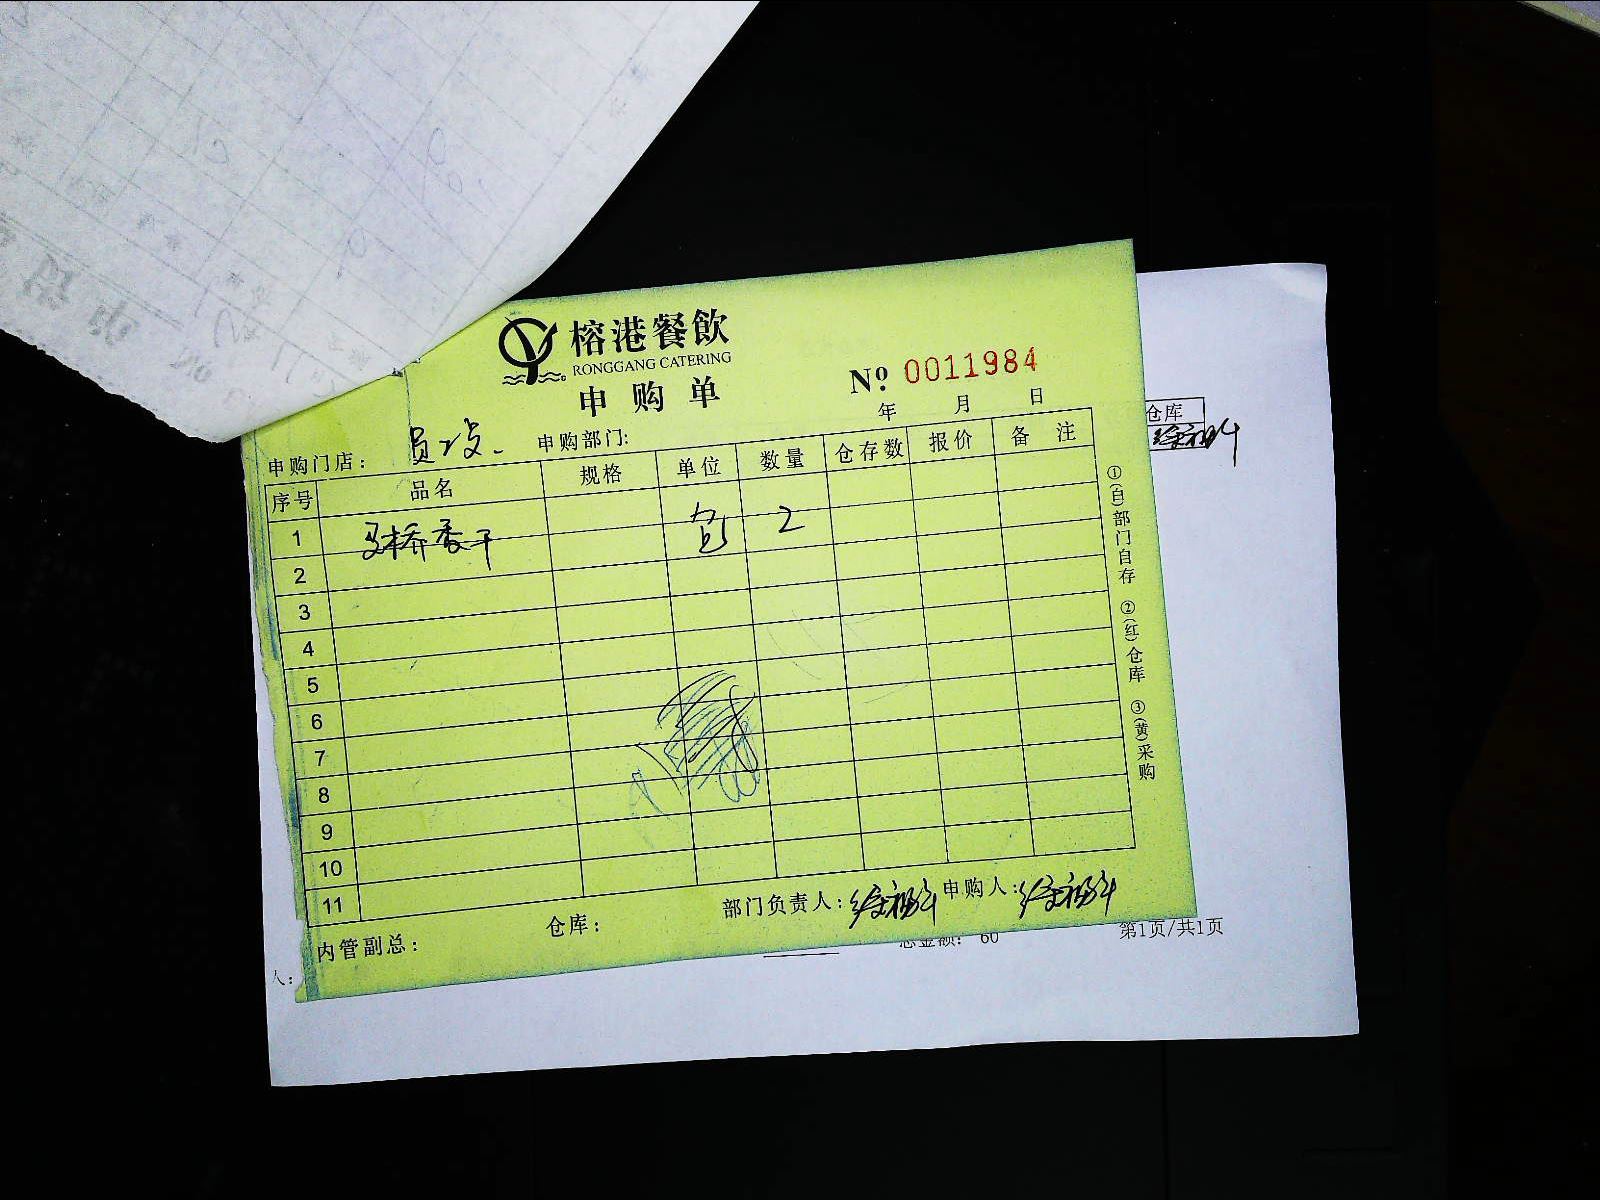 榕港餐飲
RONGGANG CATERING
申购单
№ 0011984
年 月 日
申购门店： 员工灶. 申购部门:
序号 品名 规格 单位 数量 仓存数 报价 备注
1 马桥香干 包 2
2
3
4
5
6
7
8
9
10
11
内管副总： 仓库： 部门负责人: 申购人:
①(自)部门自存 ②(红)仓库 ③(黄)采购
仓库
总金额： 60 第1页/共1页
人：